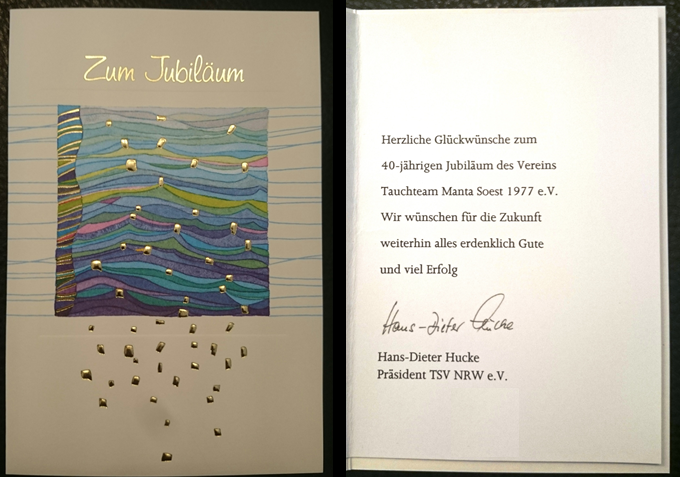 Zum Jubiläum
Herzliche Glückwünsche zum
40-jährigen Jubiläum des Vereins
Tauchteam Manta Soest 1977 e.V.
Wir wünschen für die Zukunft
weiterhin alles erdenklich Gute
und viel Erfolg
Hans-Dieter Hucke
Hans-Dieter Hucke
Präsident TSV NRW e.V.